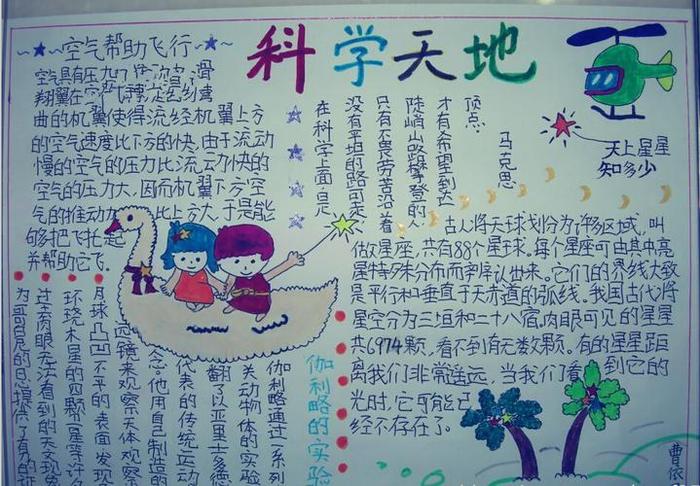 科学天地
空气帮助飞行
空气具有压力
翔翼在空气
曲的机翼使得流经机翼上方
的空气速度比下方的快,由于流动
慢的空气的压力比流动快的
空气的压力大,因而机翼下方空
气的推动力 比上方大,于是能
够把飞 托起
并帮助它飞.
在科学上面是
没有平坦的路可走
只有不畏劳苦沿着
陡峭山路攀登的人
才有希望到达
顶点.
马克思
天上星星
知多少
古人将天球划分为许多区域,叫
做星座,共有88个星球。每个星座可由其中亮
星特殊分布而 认出来。它们的界线大致
是平行和垂直于天赤道的弧线。我国古代将
星空分为三垣和二十八宿。肉眼可见的星星
共6974颗,看不到有无数颗。有的星星距
离我们非常遥远,当我们看到它的
光时,它可能已
经不存在了。
伽利略的实验
伽利略通过一系列
关动物体的实验
翻了以亚里士多德
代表的传统运动
念:他用自己制造的
远镜来观察天体,观察
月球凸凹不平的表面,发现
环绕木星的四颗卫星等许多
过去肉眼无法看到的天文现象
为哥白尼的日心 提供了有力的证
曹依